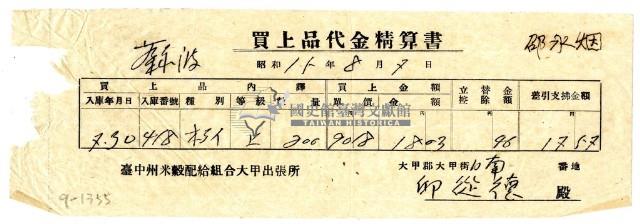 買上品代金精算書
昭和15年8月7日
買上品內譯 買上金額 立替控除金額 差引支拂金額
入庫年月日 入庫番號 種別 等級 數量 單價 金額
7.30 418 上 200 9018 18.03 .96 17.07
國史館臺灣文獻館
TAIWAN HISTORICA
臺中州米穀配給組合大甲出張所
大甲郡大甲街 番地
殿
9-1355